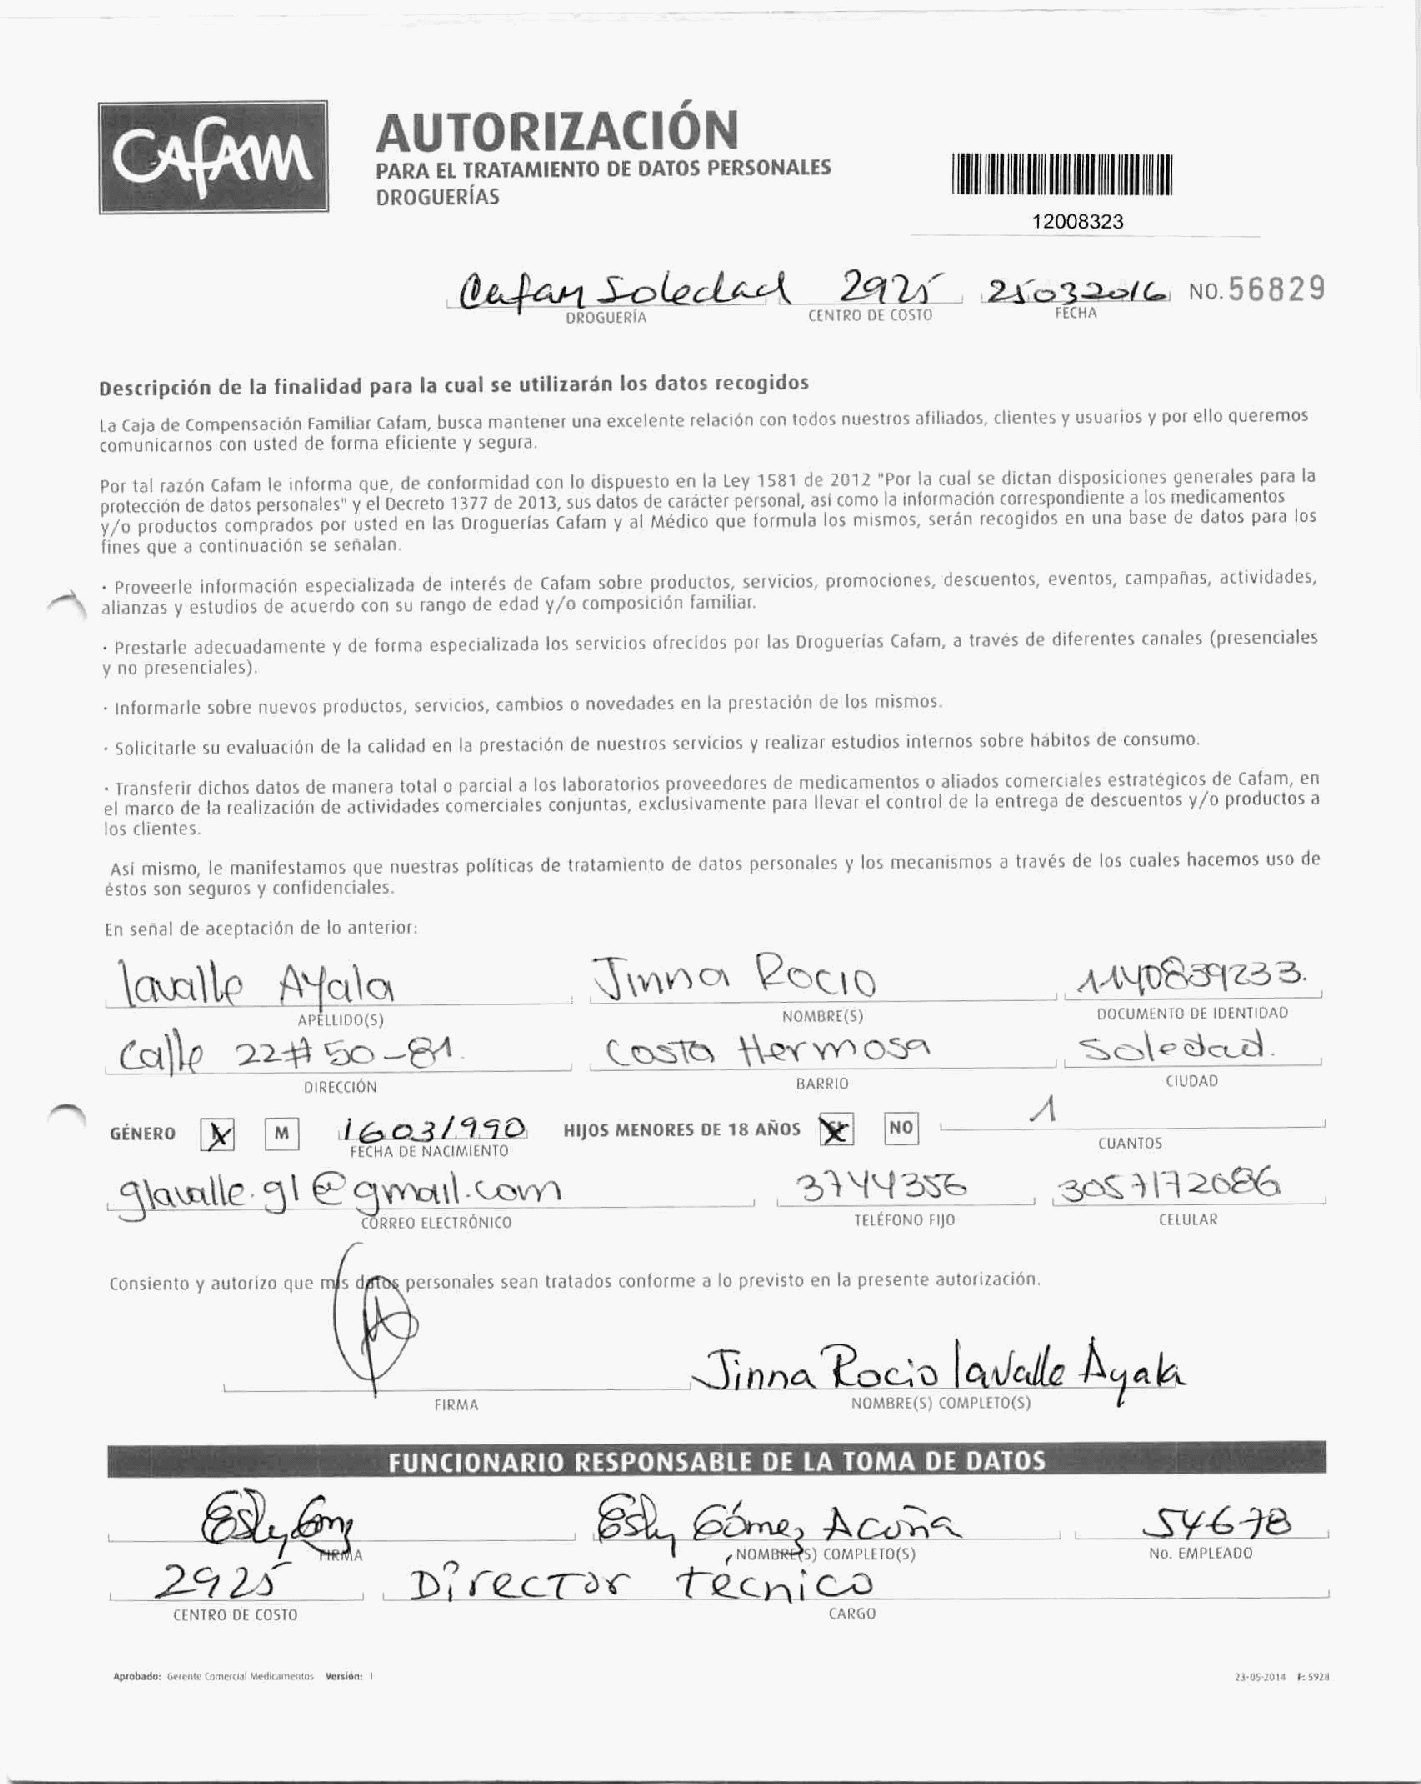 CAFAM
AUTORIZACIÓN
PARA EL TRATAMIENTO DE DATOS PERSONALES
DROGUERÍAS
12008323
Cafam Soledad 2925 25032016 NO. 56829
DROGUERÍA CENTRO DE COSTO FECHA
Descripción de la finalidad para la cual se utilizarán los datos recogidos
La Caja de Compensación Familiar Cafam, busca mantener una excelente relación con todos nuestros afiliados, clientes y usuarios y por ello queremos
comunicarnos con usted de forma eficiente y segura.
Por tal razón Cafam le informa que, de conformidad con lo dispuesto en la Ley 1581 de 2012 "Por la cual se dictan disposiciones generales para la
protección de datos personales" y el Decreto 1377 de 2013, sus datos de carácter personal, así como la información correspondiente a los medicamentos
y/o productos comprados por usted en las Droguerías Cafam y al Médico que formula los mismos, serán recogidos en una base de datos para los
fines que a continuación se señalan.
· Proveerle información especializada de interés de Cafam sobre productos, servicios, promociones, descuentos, eventos, campañas, actividades,
alianzas y estudios de acuerdo con su rango de edad y/o composición familiar.
· Prestarle adecuadamente y de forma especializada los servicios ofrecidos por las Droguerías Cafam, a través de diferentes canales (presenciales
y no presenciales).
· Informarle sobre nuevos productos, servicios, cambios o novedades en la prestación de los mismos.
· Solicitarle su evaluación de la calidad en la prestación de nuestros servicios y realizar estudios internos sobre hábitos de consumo.
· Transferir dichos datos de manera total o parcial a los laboratorios proveedores de medicamentos o aliados comerciales estratégicos de Cafam, en
el marco de la realización de actividades comerciales conjuntas, exclusivamente para llevar el control de la entrega de descuentos y/o productos a
los clientes.
Así mismo, le manifestamos que nuestras políticas de tratamiento de datos personales y los mecanismos a través de los cuales hacemos uso de
éstos son seguros y confidenciales.
En señal de aceptación de lo anterior:
lavalle Ayala Jinna Rocio 1140839233.
APELLIDO(S) NOMBRE(S) DOCUMENTO DE IDENTIDAD
Calle 22#50-81. Costa Hermosa Soledad.
DIRECCIÓN BARRIO CIUDAD
GÉNERO X M 16031990 HIJOS MENORES DE 18 AÑOS X NO 1
FECHA DE NACIMIENTO CUANTOS
glavalle.gl@gmail.com 3744356 3057172086
CORREO ELECTRÓNICO TELÉFONO FIJO CELULAR
Consiento y autorizo que mis datos personales sean tratados conforme a lo previsto en la presente autorización.
Jinna Rocio lavalle Ayala
FIRMA NOMBRE(S) COMPLETO(S)
FUNCIONARIO RESPONSABLE DE LA TOMA DE DATOS
Esly Gómez Acuña 54678
FIRMA NOMBRE(S) COMPLETO(S) No. EMPLEADO
2925 Director técnico
CENTRO DE COSTO CARGO
Aprobado: Gerente Comercial Medicamentos Versión: 1 23-05-2014 F: 5928